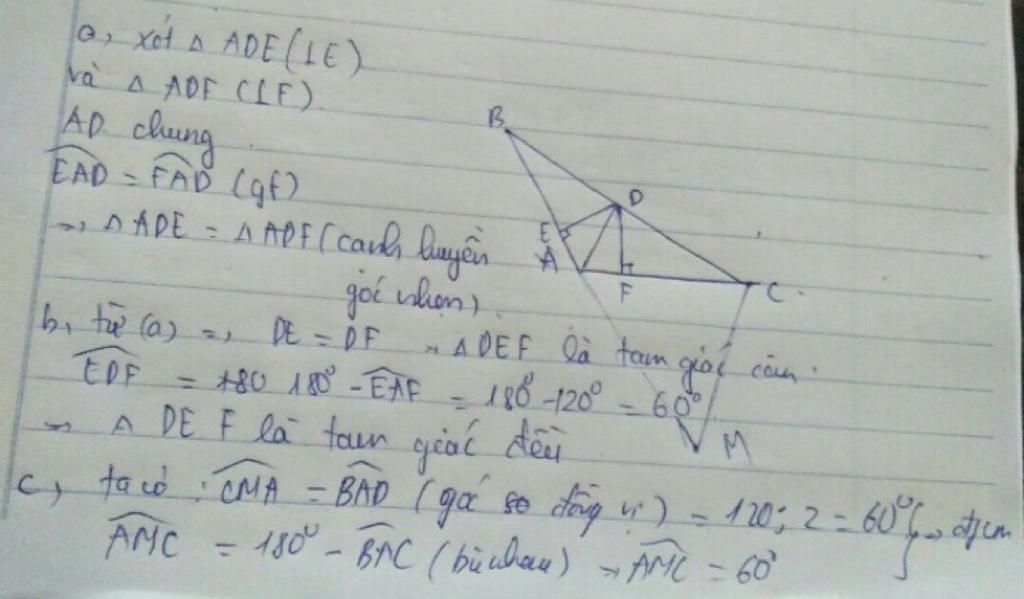 a, xét △ ADE (⊥E)
và △ ADF (⊥F)
AD chung
EAD = FAD (gt)
=> △ ADE = △ ADF (cạnh huyền
góc nhọn).
b, từ (a) => DE = DF => △ DEF là tam giác cân.
EDF = 180° - EAF = 180° - 120° = 60°
=> △ DEF là tam giác đều
c, ta có: CMA = BAD (góc đồng vị) = 120 : 2 = 60° } => đpcm
AMC = 180° - BAC (bù nhau) => AMC = 60°
B
D
E
A
F
C
M